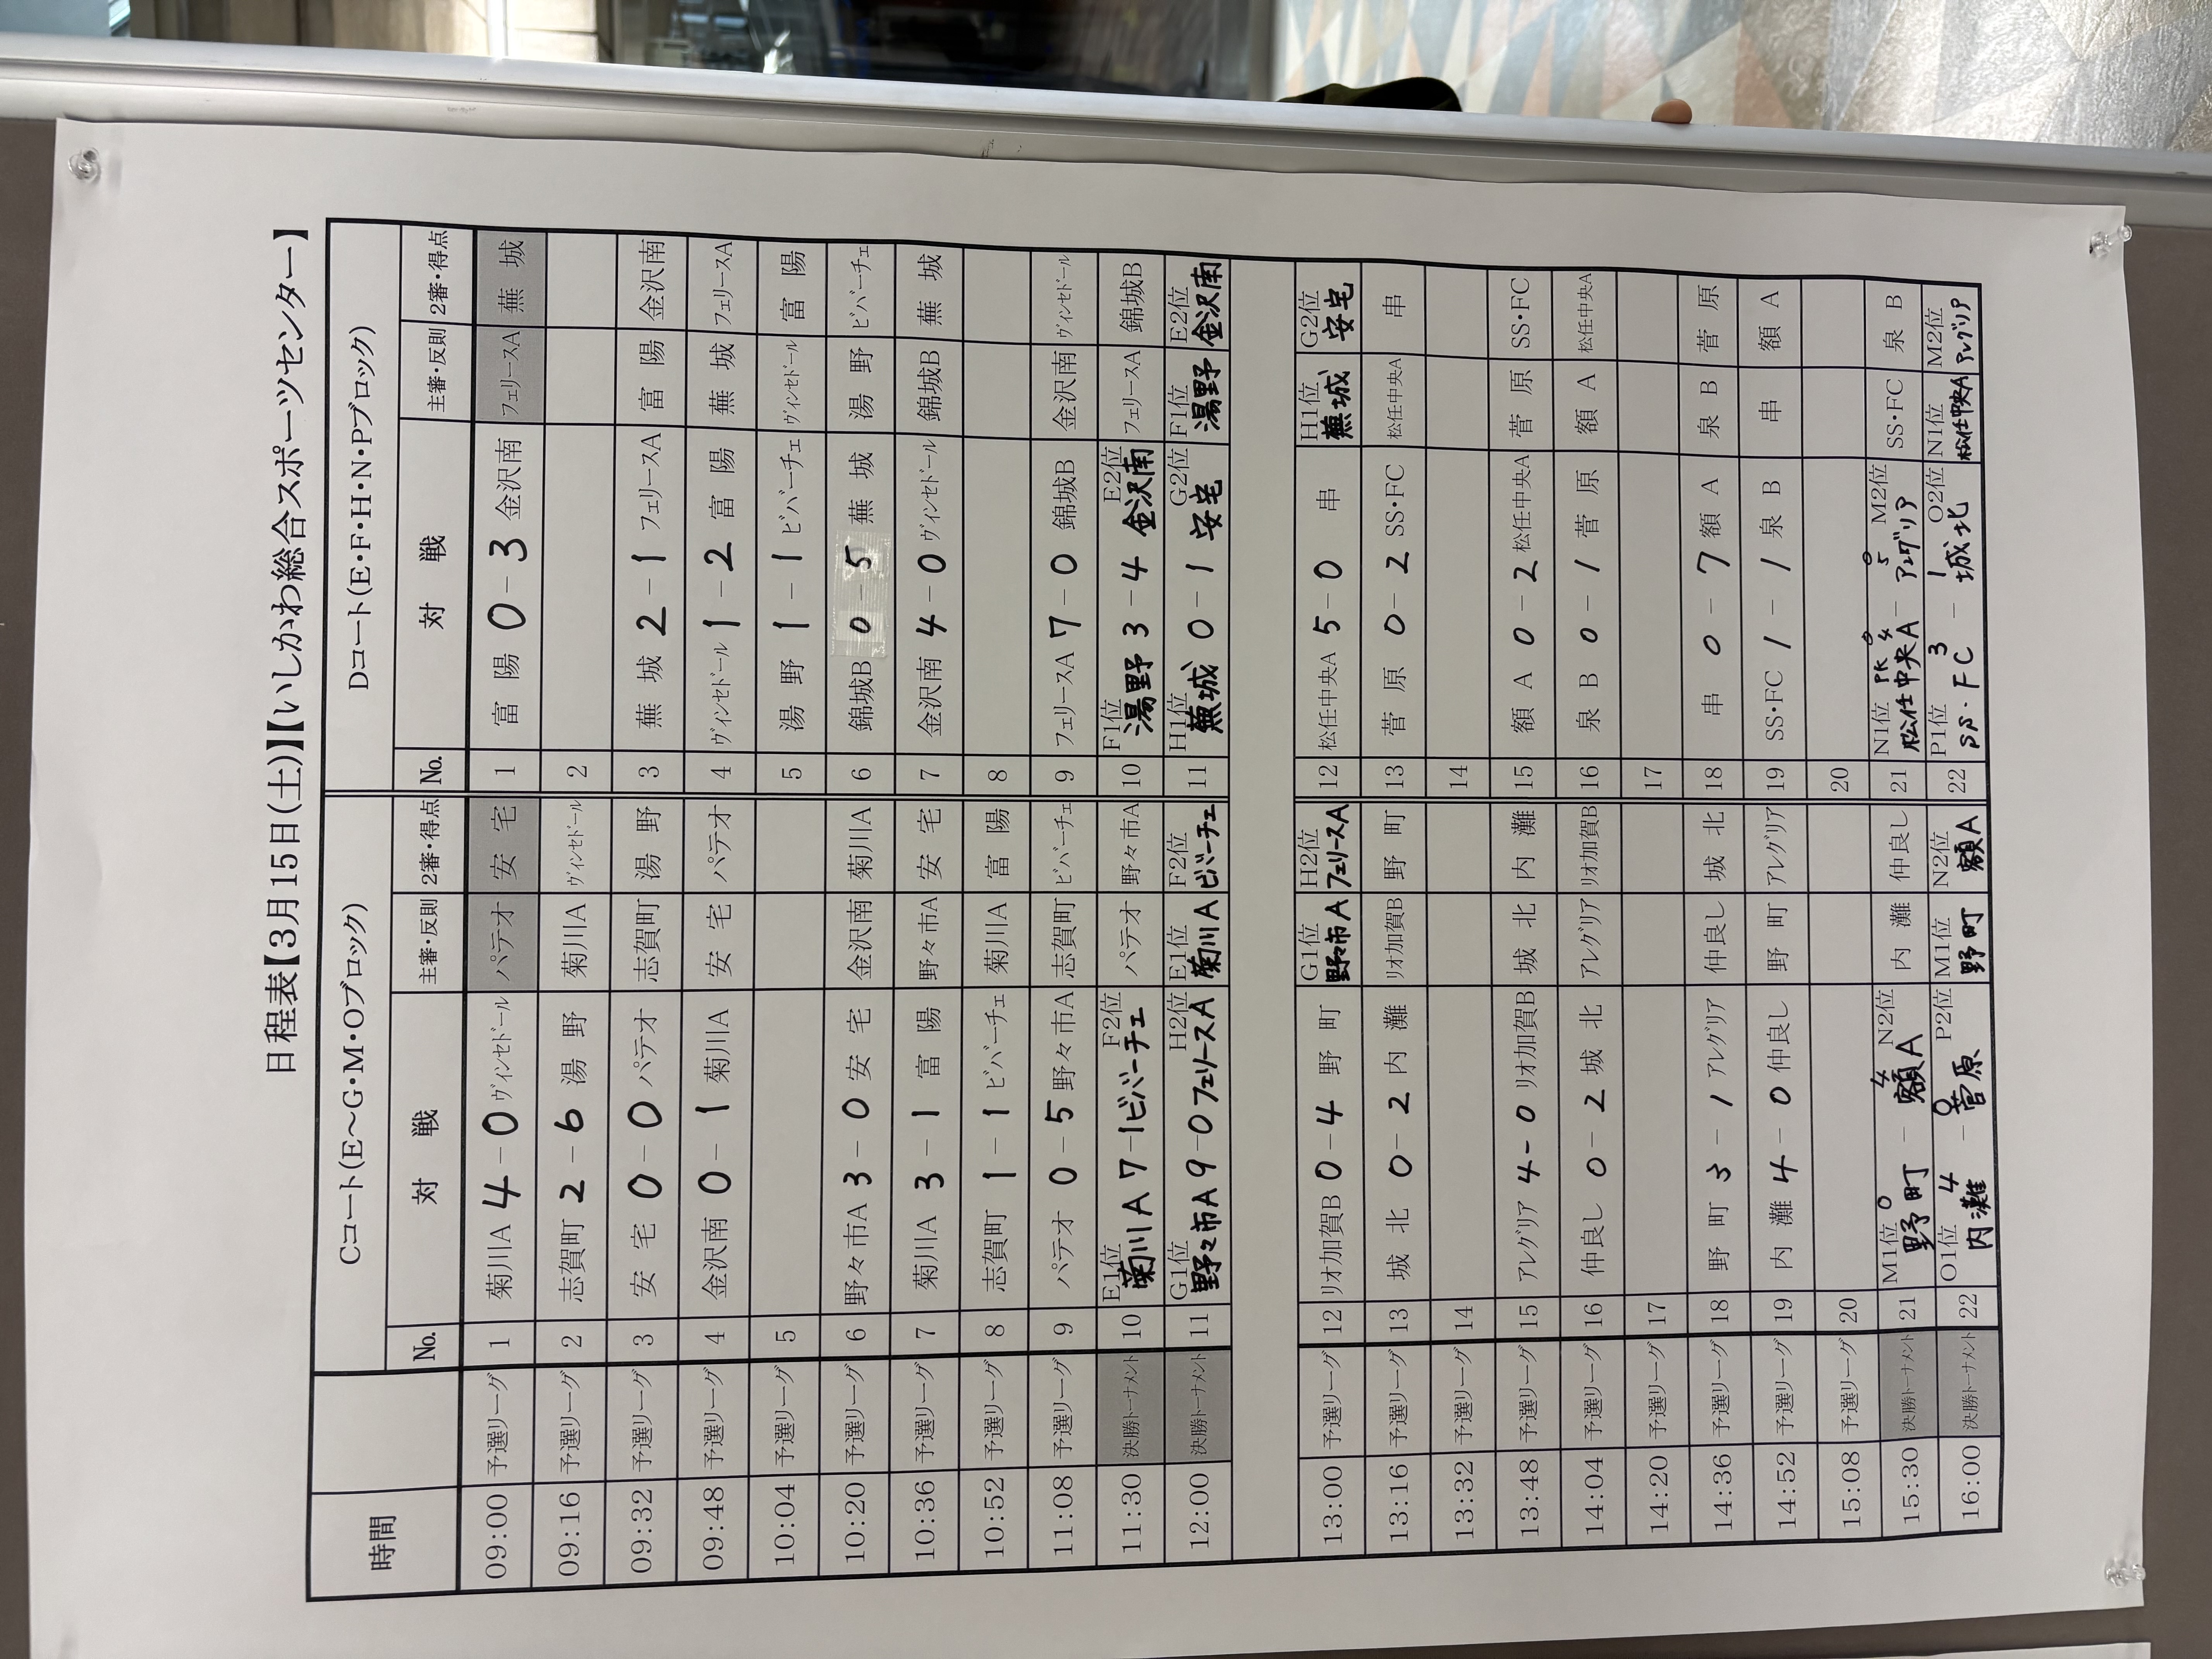 日程表【3月15日(土)】【いしかわ総合スポーツセンター】
時間 Cコート(E～G・M・Oブロック) Dコート(E・F・H・N・Pブロック)
No. 対 戦 主審・反則 2審・得点 No. 対 戦 主審・反則 2審・得点
09:00 予選リーグ 1 菊川A 4 － 0 ヴィンセドール パテオ 安 宅 1 富 陽 0 － 3 金沢南 フェリースA 蕪 城
09:16 予選リーグ 2 志賀町 2 － 6 湯 野 菊川A ヴィンセドール 2
09:32 予選リーグ 3 安 宅 0 － 0 パテオ 志賀町 湯 野 3 蕪 城 2 － 1 フェリースA 富 陽 金沢南
09:48 予選リーグ 4 金沢南 0 － 1 菊川A 安 宅 パテオ 4 ヴィンセドール 1 － 2 富 陽 蕪 城 フェリースA
10:04 予選リーグ 5 5 湯 野 1 － 1 ビバーチェ ヴィンセドール 富 陽
10:20 予選リーグ 6 野々市A 3 － 0 安 宅 金沢南 菊川A 6 錦城B 0 － 5 蕪 城 湯 野 ビバーチェ
10:36 予選リーグ 7 菊川A 3 － 1 富 陽 野々市A 安 宅 7 金沢南 4 － 0 ヴィンセドール 錦城B 蕪 城
10:52 予選リーグ 8 志賀町 1 － 1 ビバーチェ 菊川A 富 陽 8
11:08 予選リーグ 9 パテオ 0 － 5 野々市A 志賀町 ビバーチェ 9 フェリースA 7 － 0 錦城B 金沢南 ヴィンセドール
11:30 決勝トーナメント 10 E1位 菊川A 7 － 1 F2位 ビバーチェ パテオ 野々市A 10 F1位 湯野 3 － 4 E2位 金沢南 フェリースA 錦城B
12:00 決勝トーナメント 11 G1位 野々市A 9 － 0 H2位 フェリースA E1位 菊川A F2位 ビバーチェ 11 H1位 蕪城 0 － 1 G2位 安宅 F1位 湯野 E2位 金沢南
13:00 予選リーグ 12 リオ加賀B 0 － 4 野 町 G1位 野々市A H2位 フェリースA 12 松任中央A 5 － 0 串 H1位 蕪城 G2位 安宅
13:16 予選リーグ 13 城 北 0 － 2 内 灘 リオ加賀B 野 町 13 菅 原 0 － 2 SS・FC 松任中央A 串
13:32 予選リーグ 14 14
13:48 予選リーグ 15 アレグリア 4 － 0 リオ加賀B 城 北 内 灘 15 額 A 0 － 2 松任中央A 菅 原 SS・FC
14:04 予選リーグ 16 仲良し 0 － 2 城 北 アレグリア リオ加賀B 16 泉 B 0 － 1 菅 原 額 A 松任中央A
14:20 予選リーグ 17 17
14:36 予選リーグ 18 野 町 3 － 1 アレグリア 仲良し 城 北 18 串 0 － 7 額 A 泉 B 菅 原
14:52 予選リーグ 19 内 灘 4 － 0 仲良し 野 町 アレグリア 19 SS・FC 1 － 1 泉 B 串 額 A
15:08 予選リーグ 20 20
15:30 決勝トーナメント 21 M1位 野町 0 － 4 N2位 額A 内 灘 仲良し 21 N1位 松任中央A 0 PK 4 － 5 0 M2位 アレグリア SS・FC 泉 B
16:00 決勝トーナメント 22 O1位 内灘 4 － 0 P2位 菅原 M1位 野町 N2位 額A 22 P1位 SS・FC 3 － 1 O2位 城北 N1位 松任中央A M2位 アレグリア